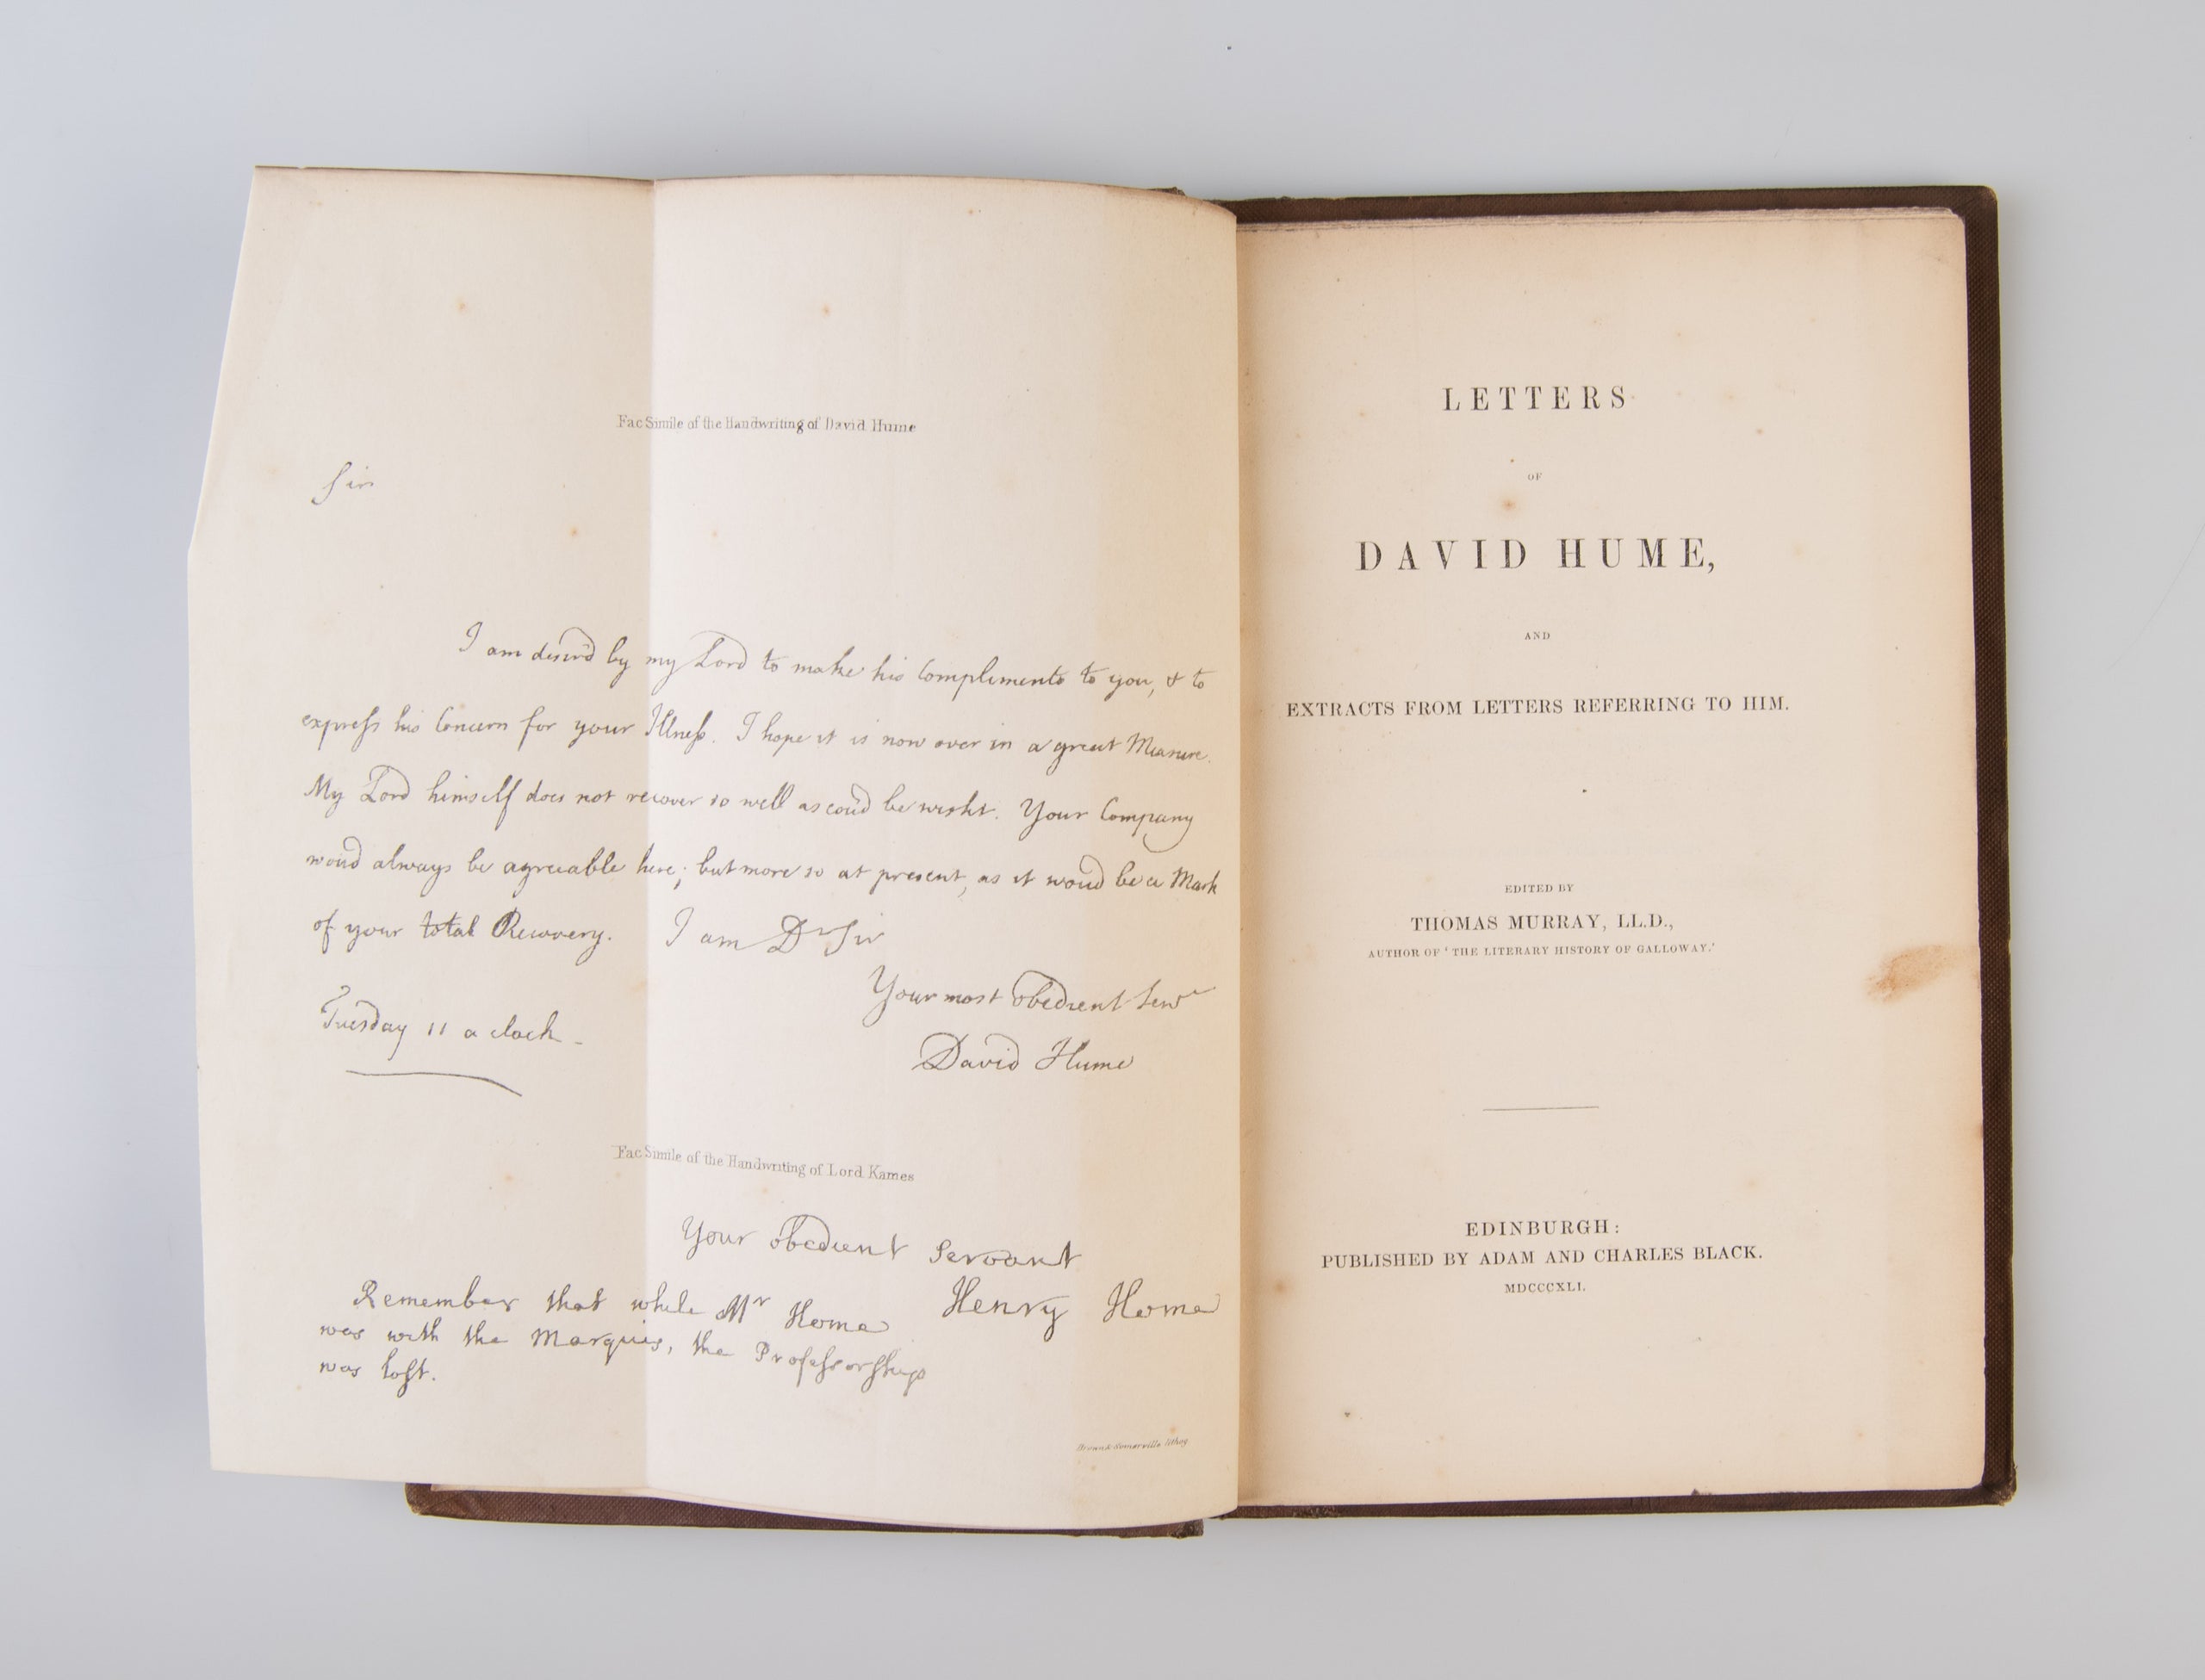 Fac Simile of the Handwriting of David Hume
Sir
I am desir'd by my Lord to make his Compliments to you, & to
express his Concern for your Illness. I hope it is now over in a great Measure.
My Lord himself does not recover so well as coud be wisht. Your Company
woud always be agreeable here; but more so at present, as it woud be a Mark
of your total Recovery. I am Dr Sir
Your most obedient Servt
David Hume
Tuesday 11 a clock
Fac Simile of the Handwriting of Lord Kames
Your obedient Servant
Henry Home
Remember that while Mr Home
was with the Marquis, the Professorship
was lost.
Brown & Somerville lithog.
LETTERS
OF
DAVID HUME,
AND
EXTRACTS FROM LETTERS REFERRING TO HIM.
EDITED BY
THOMAS MURRAY, LL.D.,
AUTHOR OF 'THE LITERARY HISTORY OF GALLOWAY.'
EDINBURGH:
PUBLISHED BY ADAM AND CHARLES BLACK.
MDCCCXLI.